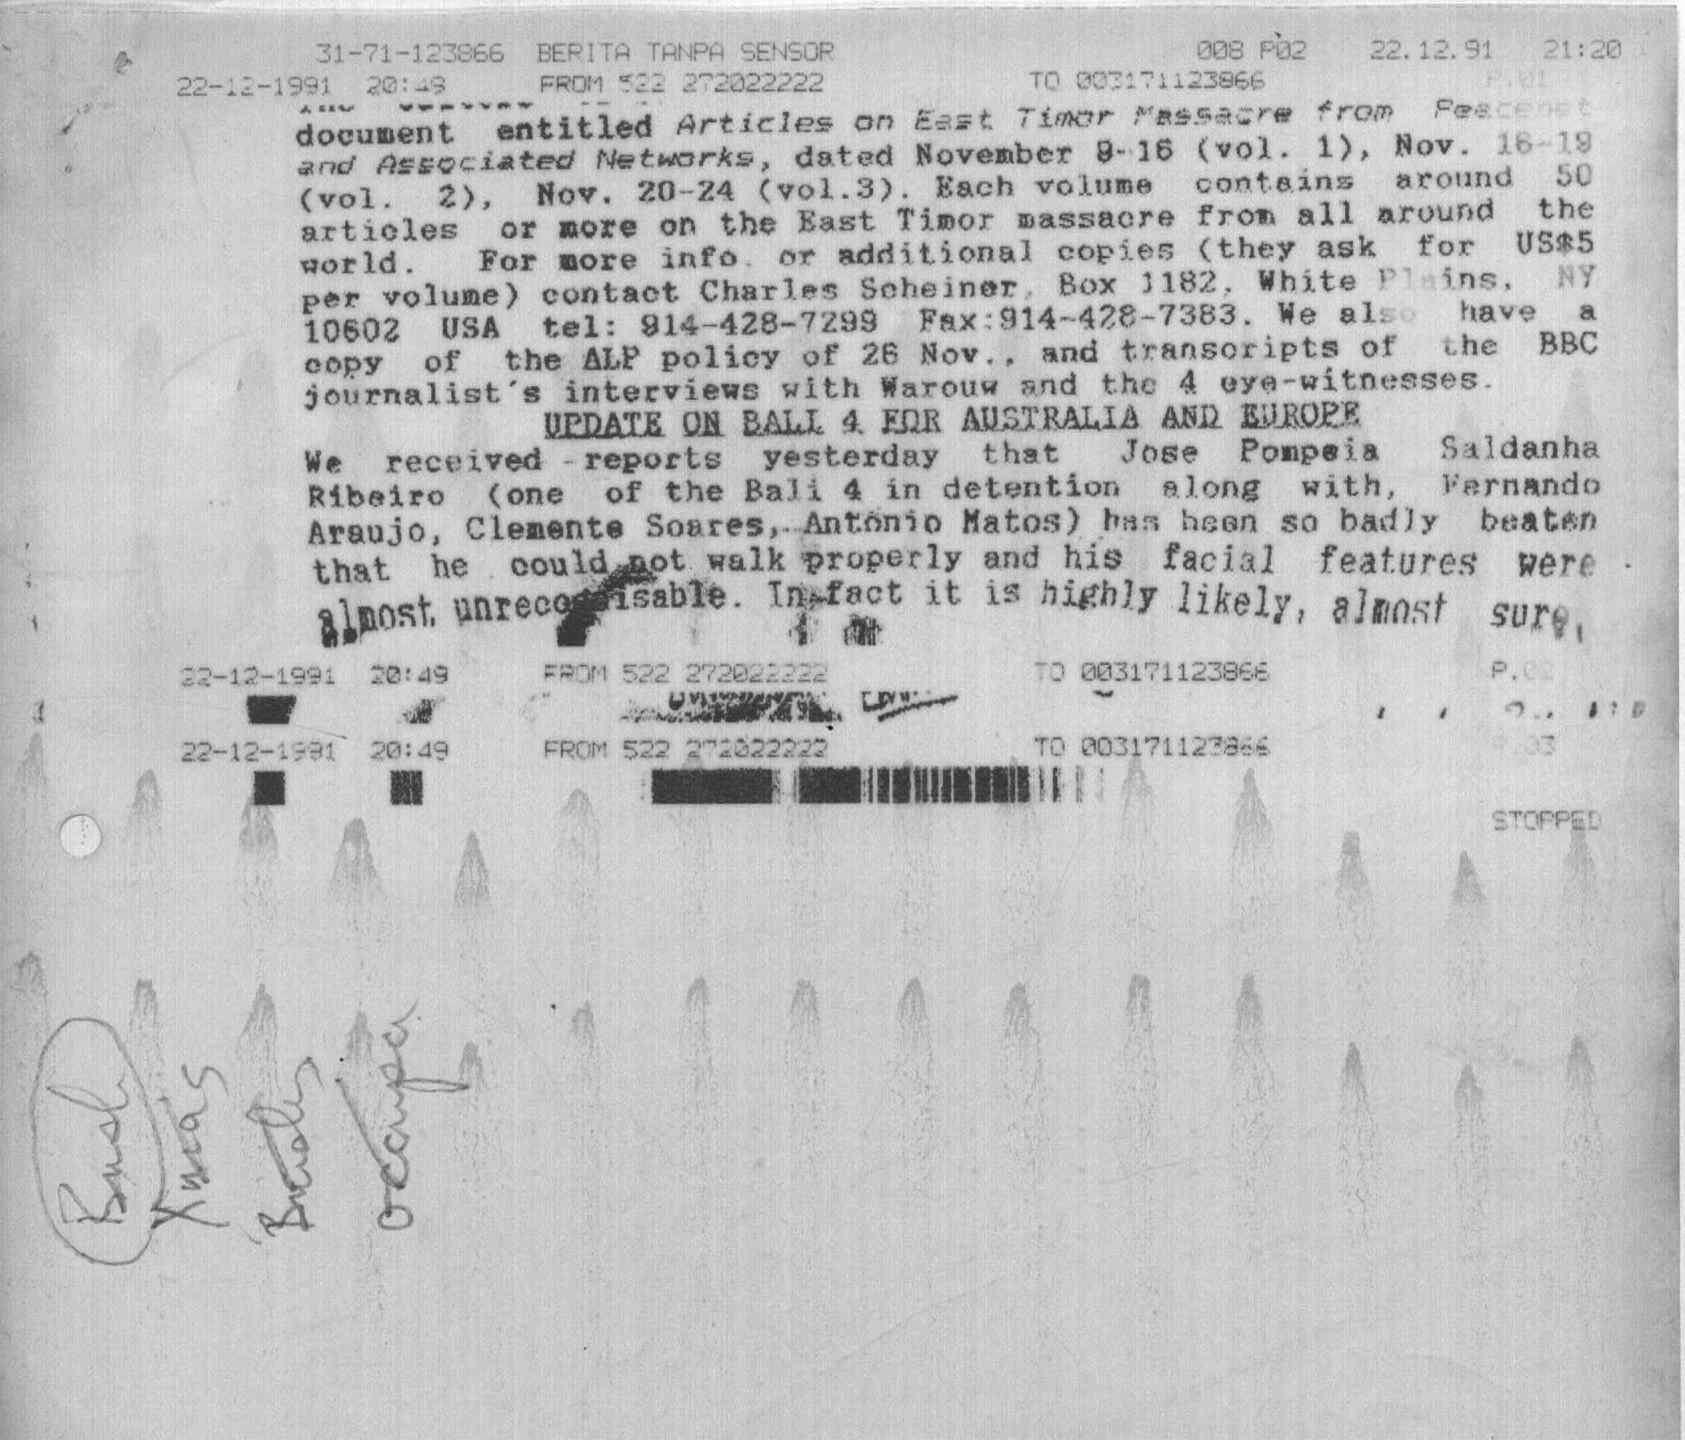 31-71-123866 BERITA TANPA SENSOR 008 P02 22.12.91 21:20
22-12-1991 20:49 FROM 522 272022222 TO 003171123866 P.01
document entitled Articles on East Timor Massacre from Peacenet
and Associated Networks, dated November 9-16 (vol. 1), Nov. 16-19
(vol. 2), Nov. 20-24 (vol.3). Each volume contains around 50
articles or more on the East Timor massacre from all around the
world. For more info. or additional copies (they ask for US$5
per volume) contact Charles Scheiner, Box 1182, White Plains, NY
10602 USA tel: 914-428-7299 Fax:914-428-7383. We also have a
copy of the ALP policy of 26 Nov., and transcripts of the BBC
journalist's interviews with Warouw and the 4 eye-witnesses.
UPDATE ON BALI 4 FOR AUSTRALIA AND EUROPE
We received reports yesterday that Jose Pompeia Saldanha
Ribeiro (one of the Bali 4 in detention along with, Fernando
Araujo, Clemente Soares, Antonio Matos) has been so badly beaten
that he could not walk properly and his facial features were
almost unrecognisable. In fact it is highly likely, almost sure,
22-12-1991 20:49 FROM 522 272022222 TO 003171123866
22-12-1991 20:49 FROM 522 272022222 TO 003171123866 P.03
STOPPED
Bush
Xmas